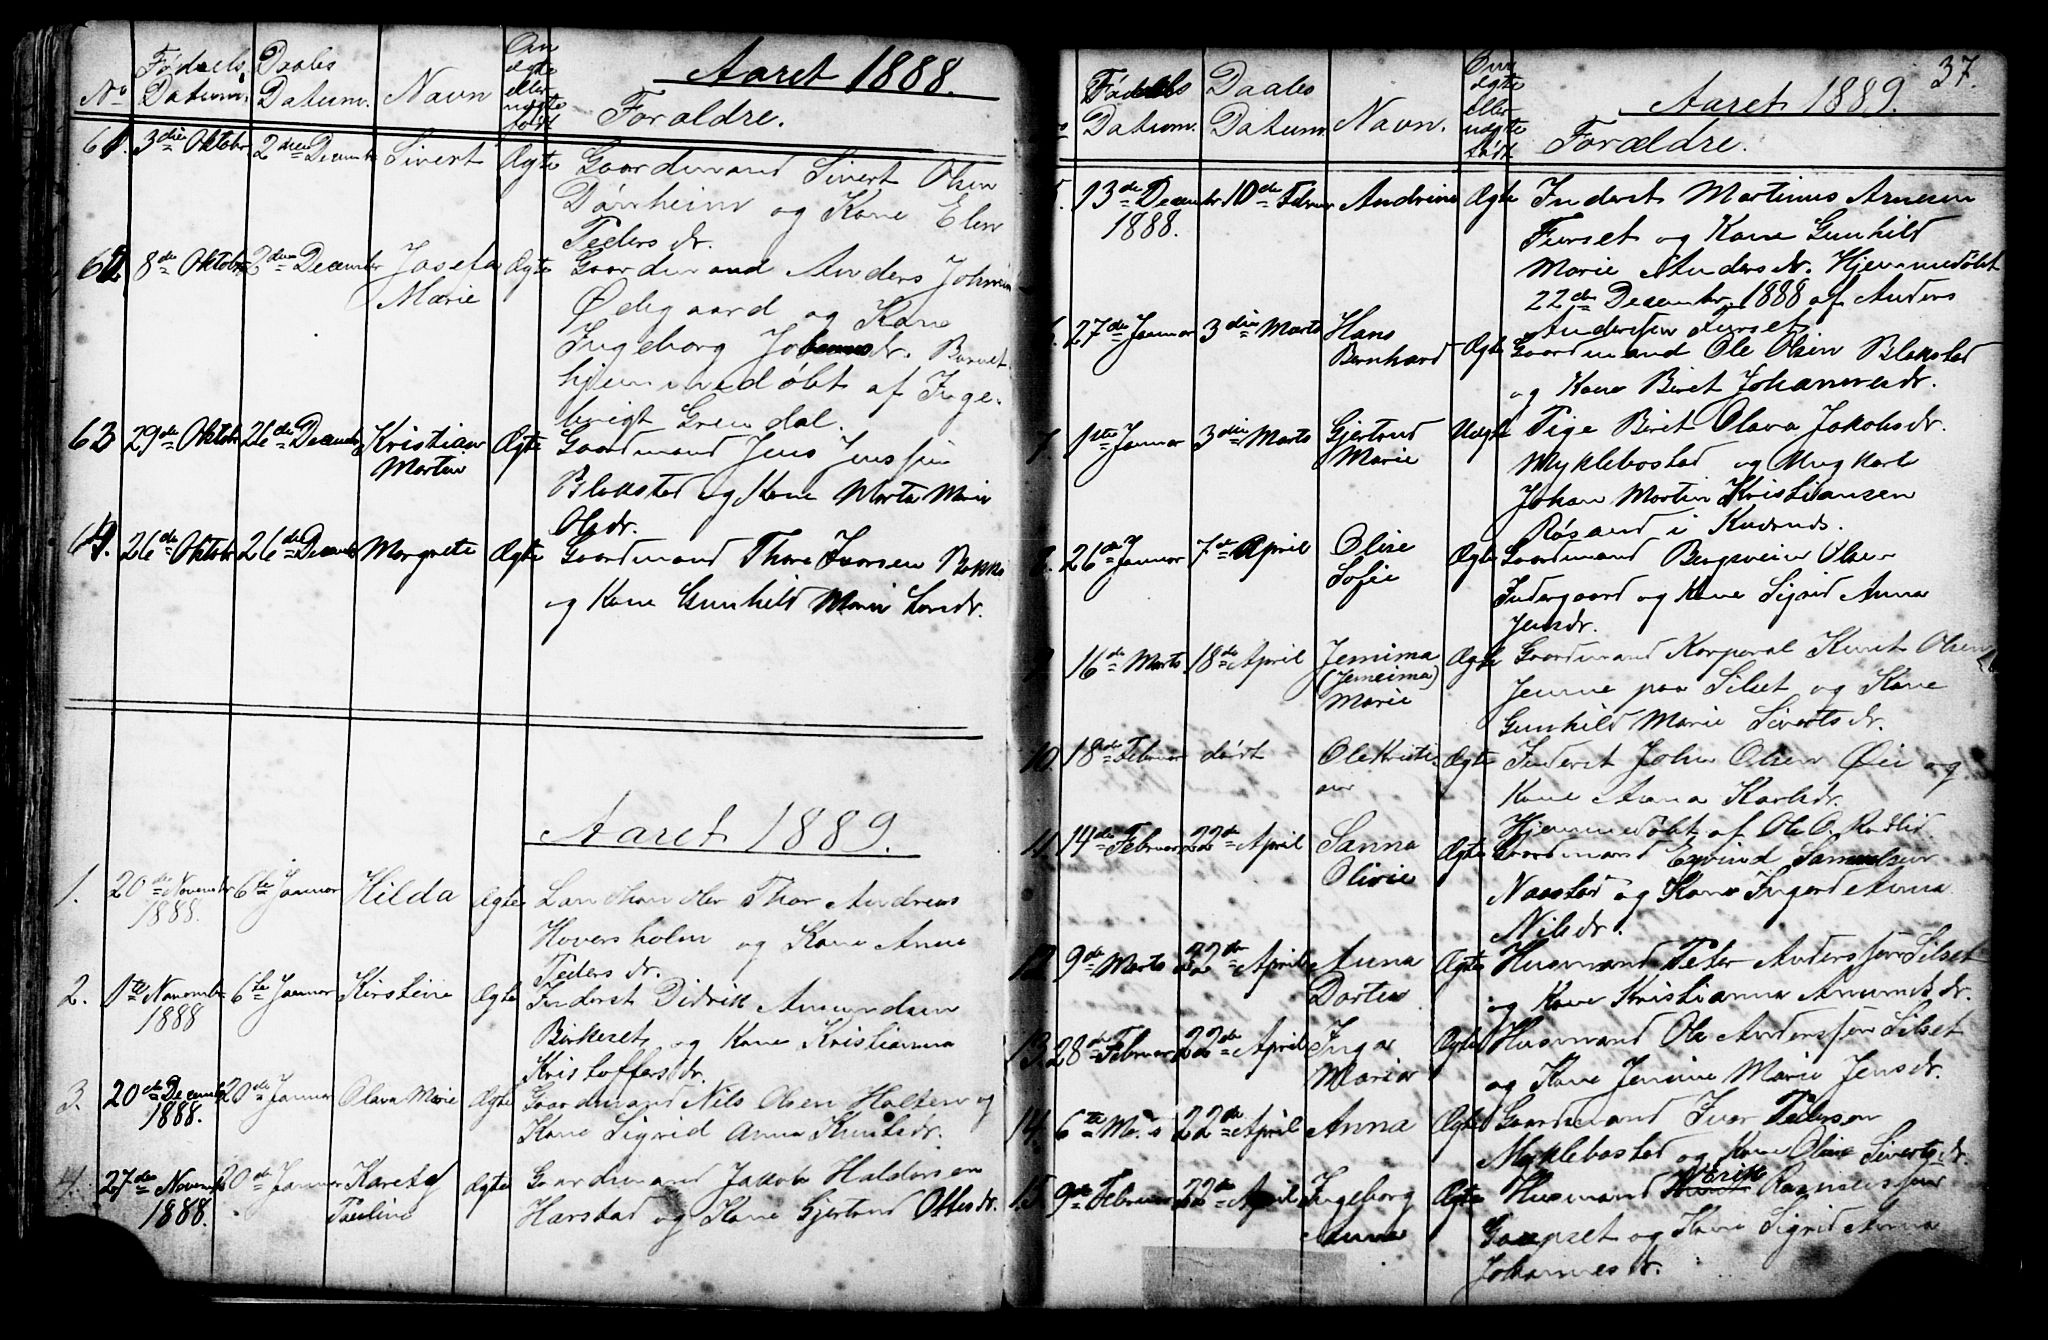 Aaret 1888.
No Fødsels Datum. Daabs Datum. Navn Om ægte eller uægte født Forældre.
61. 3die Oktobr 2den Decemb Sivert Ægte Gaardmand Sivert Olsen
Dørrheim og Kone Elen
Pedersdr.
62. 8de Oktobr 2den December Josefa Ægte Gaardmand Anders Johnsen
Marie Ødegaard og Kone
Ingeborg Johannesdr. Barnet
hjemmedøbt af Inge-
brigt Grendal.
63 29de Oktobr 26de Decembr Kristian Ægte Gaardmand Jens Jenssen
Martin Blakstad og Kone Marta Marie
Olsdr.
64. 26de Oktobr 26de Decembr Margrete Ægte Gaardmand Thore Iversen Bakke
og Kone Gunhild Marie Larsdr.
Aaret 1889.
1. 20de Novembr 6te Januar Hilda Ægte Landhandler Thor Andreas
1888. Hoversholm og Kone Anne
Pedersdr.
2. 1ste Novembr 6te Januar Kirstine Ægte Inderst Didrik Amundsen
1888 Birkeset og Kone Kristianna
Kristoffersdr.
3. 20de Decembr 20de Januar Olava Marie Ægte Gaardmand Nils Olsen Holten og
1888. Kone Sigrid Anna Knutsdr.
4. 27de Novembr 20de Januar Karet Ægte Gaardmand Jakob Haldorsen
1888. Pauline Harstad og Kone Gjertrud Ottesdr.
37.
Aaret 1889.
Fødsels Datum. Daabs Datum. Navn. Om ægte eller uægte født Forældre.
5. 13de Decembr 10de Februar Andrine Ægte Inderst Martinus Arnesen
1888. Furset og Kone Gunhild
Marie Andersdr. Hjemmedøbt
22de Decembr 1888 af Anders
Andersen Furset.
6. 27de Januar 3die Marts Hans Bernhard Ægte Gaardmand Ole Olsen Blakstad
og Kone Beret Johannesdr.
7. 1ste Januar 3die Marts Gjertrud Marie Uægte Pige Beret Olava Jakobsdr.
Myklebostad og Ungkarl
Johan Martin Kristiansen
Røsand i Kvernes.
8. 26de Januar 7de April Olise Sofie Ægte Gaardmand Bergsvein Olsen
Indergaard og Kone Sigrid Anna
Jensdr.
9. 16de Marts 18de April Jemima Ægte Gaardmand Korporal Knut Olsen
(Jemeima) Marie Jenne paa Silset og Kone
Gunhild Marie Sivertsdr.
10. 18de Februar dødt Ole Kristi- Ægte Inderst John Olsen Øie og
an Kone Anna Karlsdr.
Hjemmedøbt af Ole O. Rødlid.
11. 14de Februar 22de April Sanna Olivie Ægte Gaardmand Eyvind Samuelsen
Naastad og Kone Ingerd Anna
Nilsdr.
12. 9de Marts 22de April Anna Dortea Ægte Husmand Peter Anderssen Silset
og Kone Kristianna Amundsdr.
13. 28de Februar 22de April Inga Maria Ægte Husmand Ole Anderssen Silset
og Kone Jenine Marie Jensdr.
14. 6te Marts 22de April Anna Ægte Gaardmand Iver Pedersen
Myklebostad og Kone Oline Sivertsdr.
15. 9de Februar 22de April Ingeborg Anna Ægte Husmand Erik Rasmussen
Gaupset og Kone Sigrid Anna
Johannesdr.